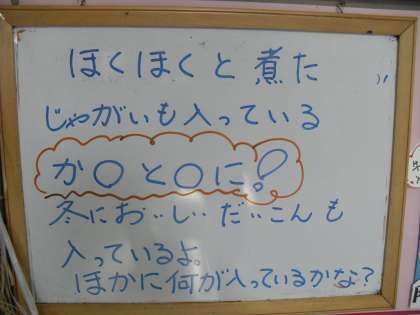 ほくほくと煮た
じゃがいも入っている
か〇と〇に!
冬においしいだいこんも
入っているよ。
ほかに何が入っているかな?